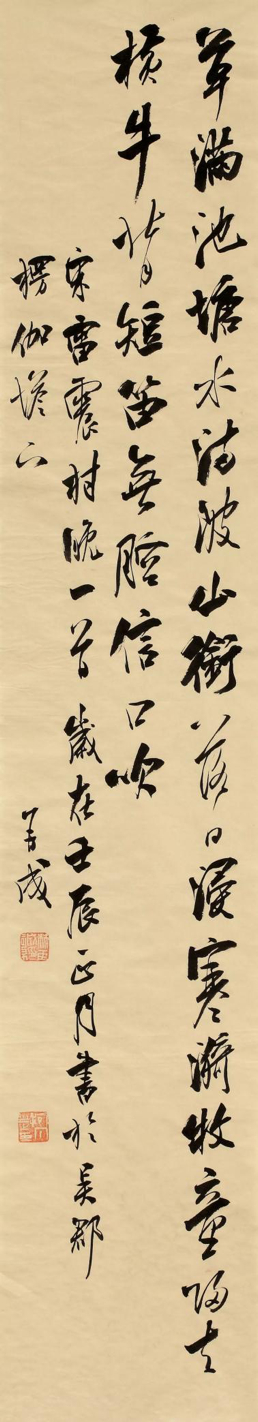 草满池塘水满陂山衔落日浸寒漪牧童归去
横牛背短笛无腔信口吹
宋雷震村晚一首 岁在壬辰正月书于吴郡
楞伽塔下 善成